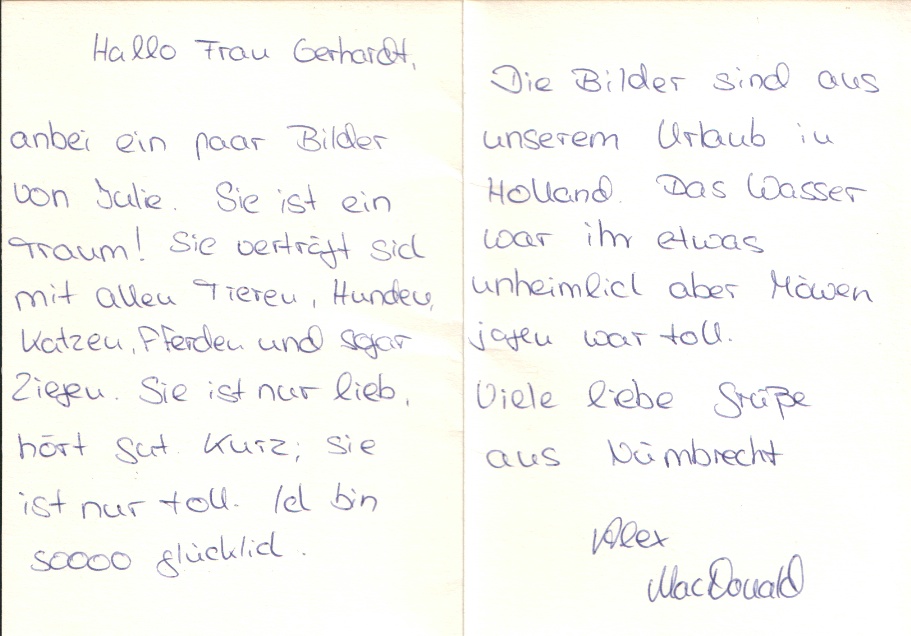 Hallo Frau Gerhardt,
anbei ein paar Bilder
von Julie. Sie ist ein
Traum! Sie verträgt sich
mit allen Tieren, Hunden,
Katzen, Pferden und sogar
Ziegen. Sie ist nur lieb,
hört gut. Kurz; sie
ist nur toll. Ich bin
soooo glücklich.
Die Bilder sind aus
unserem Urlaub in
Holland. Das Wasser
war ihr etwas
unheimlich aber Möwen
jagen war toll.
Viele liebe Grüße
aus Nümbrecht
Alex
MacDonald